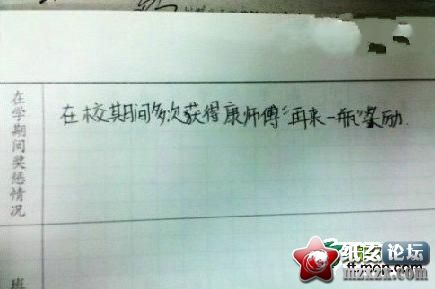 在学期间奖惩情况
在校期间多次获得康师傅“再来一瓶”奖励.
班
纸客论坛